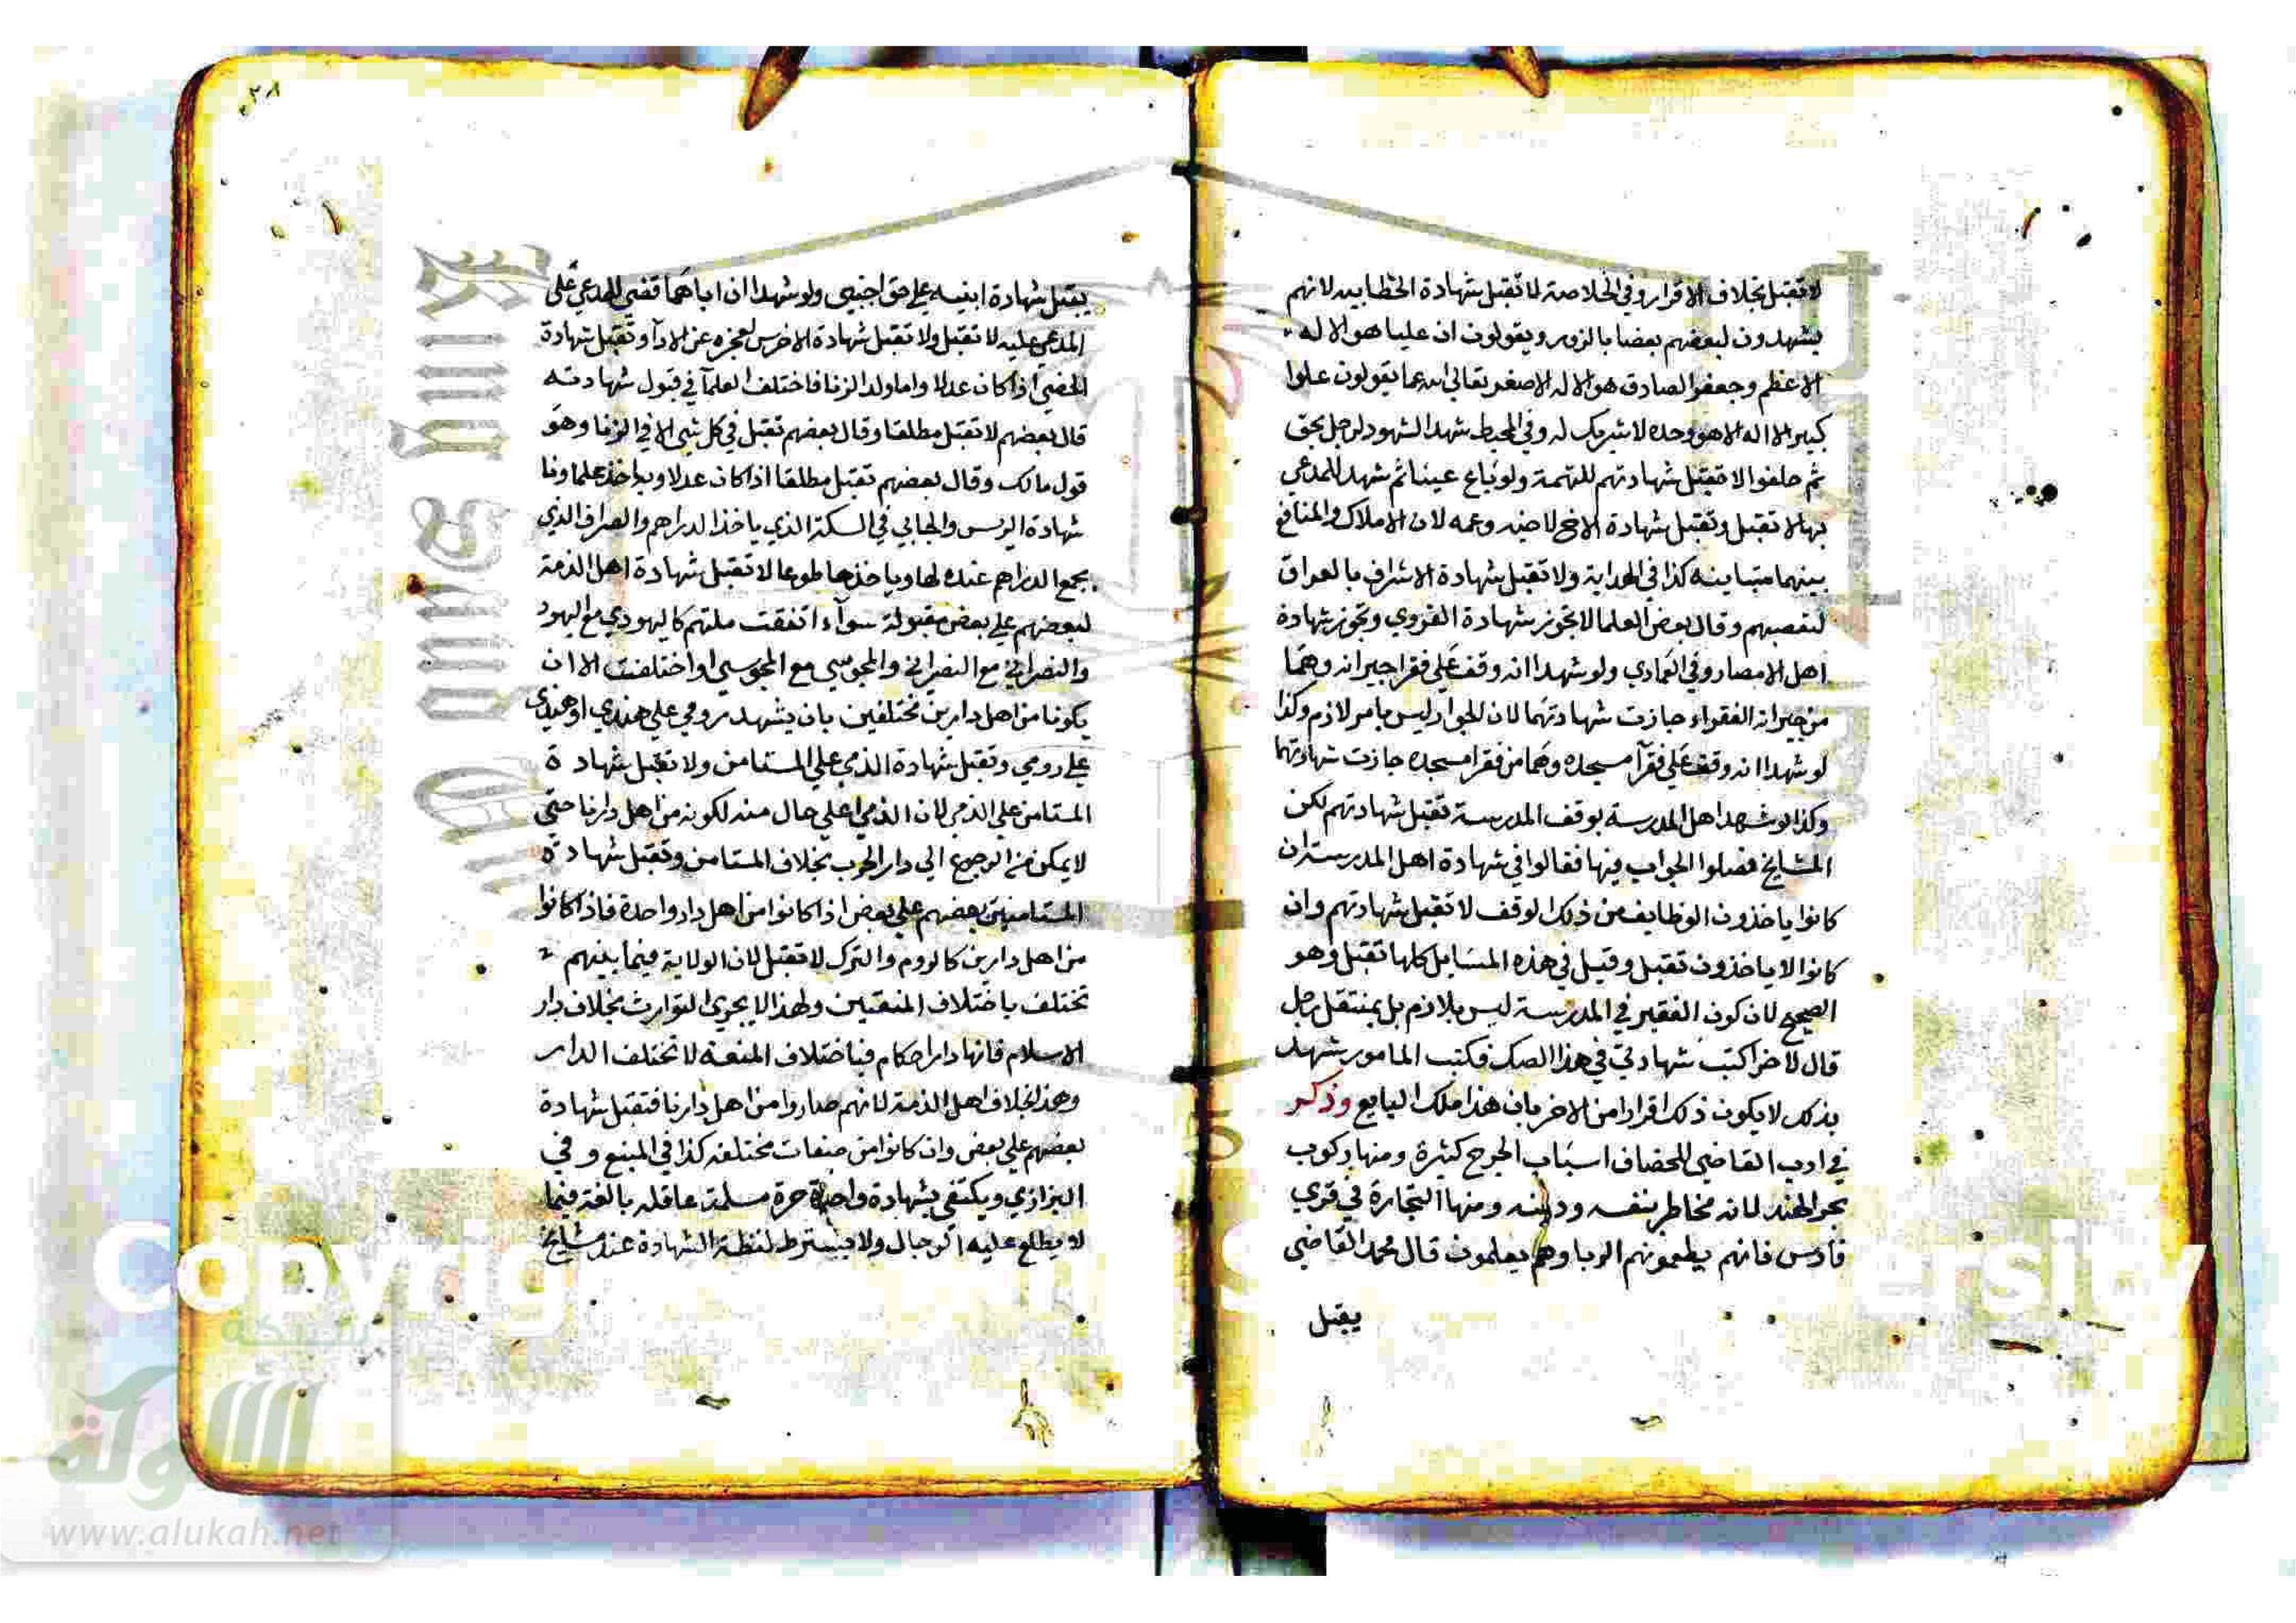 لا تقبل بخلاف الاقرار وفي الخلاصة لا تقبل شهادة الخطابيه لانهم
يشهدون لبعضهم بعضا بالزور ويقولون ان عليا هو الاله
الاعظم وجعفر الصادق هو الاله الاصغر تعالى الله عما يقولون علوا
كبيرا لا اله الا هو وحده لا شريك له وفي المحيط شهد الشهود لرجل بحق
ثم حلفوا لا تقبل شهادتهم للتهمة ولو باع عينا ثم شهد للمدعي
بها لا تقبل وتقبل شهادة الاخ لاخيه وعمه لان الاملاك والمنافع
بينهما متباينه كذا في الهداية ولا تقبل شهادة الاشراف بالعراق
لتعصبهم وقال بعض العلما لا تجوز شهادة القروي وتجوز شهادة
اهل الامصار وفي العمادي ولو شهدا انه وقف على فقرا جيرانه وهما
من جيرانه الفقراء جازت شهادتهما لان الجوار ليس بامر لازم وكذا
لو شهدا انه وقف على فقرآ مسجده وهما من فقرا مسجده جازت شهادتهما
وكذا لو شهد اهل المدرسة بوقف المدرسة تقبل شهادتهم لكن
المشايخ فصلوا الجواب فيها فقالوا في شهادة اهل المدرسة ان
كانوا ياخذون الوظايف من ذلك الوقف لا تقبل شهادتهم وان
كانوا لا ياخذون تقبل وقيل في هذه المسايل كلها تقبل وهو
الصحيح لان كون الفقير في المدرسة ليس بلازم بل ينتقل رجل
قال لاخر اكتب شهادتي في هذا الصك فكتب المامور شهد
بذلك لا يكون ذلك اقرارا من الاخر بان هذا ملك البايع وذكر
في ادب القاضي للخصاف اسباب الجرح كثيرة ومنها ركوب
بحر الهند لانه مخاطر بنفسه ودينه ومنها التجارة في قرى
فارس فانهم يطعمونهم الربا وهم يعلمون قال محمد القاضي
يقبل
٢٨
يقبل شهادة ابنيه على حق اجنبي ولو شهدا ان اباهما قضى للمدعي على
المدعى عليه لا تقبل ولا تقبل شهادة الاخرس لعجزه عن الادآ وتقبل شهادة
الخصي اذا كان عدلا واما ولد الزنا فاختلف العلمآ في قبول شهادته
قال بعضهم لا تقبل مطلقا وقال بعضهم تقبل في كل شي الا في الزنا وهو
قول مالك وقال بعضهم تقبل مطلقا اذا كان عدلا وبه اخذ علماونا
شهادة الريس والجابي في السكة الذي ياخذ الدراهم والصراف الذي
يجمع الدراهم عنده لها وياخذها طوعا لا تقبل شهادة اهل الذمة
لبعضهم على بعض مقبولة سوآء اتفقت ملتهم كاليهودي مع اليهود
والنصراني مع النصراني والمجوسي مع المجوسي او اختلفت الا ان
يكونا من اهل دارين مختلفين بان يشهد رومي على هندي او هندي
على رومي وتقبل شهادة الذمي على المستامن ولا تقبل شهادة
المستامن على الذمي لان الذمي اعلى حال منه لكونه من اهل دارنا حتى
لا يمكن من الرجوع الى دار الحرب بخلاف المستامن وتقبل شهادة
المستامنين بعضهم على بعض اذا كانوا من اهل دار واحدة فاذا كانوا
من اهل دارين كالروم والترك لا تقبل لان الولاية فيما بينهم
تختلف باختلاف المنعتين ولهذا لا يجري التوارث بخلاف دار
الاسلام فانها دار احكام فباختلاف المنعة لا تختلف الدار
وهذا بخلاف اهل الذمة لانهم صاروا من اهل دارنا فتقبل شهادة
بعضهم على بعض وان كانوا من منعات مختلفة كذا في المنبع وفي
البزازي ويكتفى بشهادة واحدة حرة مسلمة عاقله بالغة فيما
لا يطلع عليه الرجال ولا يشترط لفظة الشهادة عند مشايخ
شبكة
الألوكة
www.alukah.net